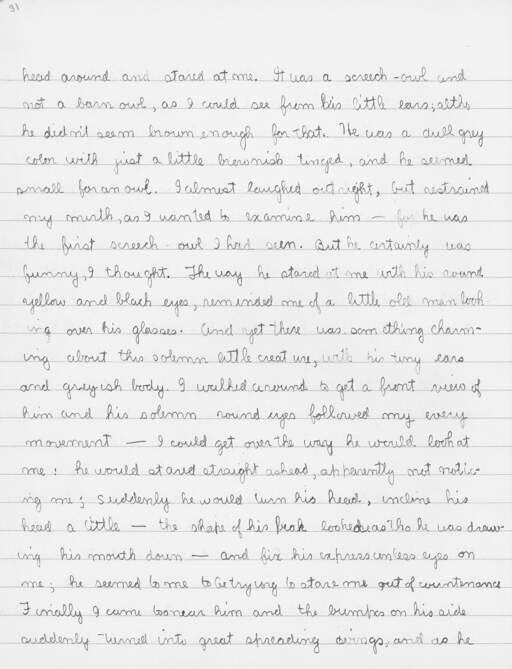 31
head around and stared at me. It was a screech-owl and
not a barn owl, as I could see from his little ears; altho
he didn't seem brown enough for that. He was a dull grey
color with just a little brownish tinged, and he seemed
small for an owl. I almost laughed outright, but restrained
my mirth, as I wanted to examine him — for he was
the first screech-owl I had seen. But he certainly was
funny, I thought. The way he stared at me with his round
yellow and black eyes, reminded me of a little old man look-
ing over his glasses. And yet there was something charm-
ing about this solemn little creature, with his tiny ears
and greyish body. I walked around to get a front view of
him and his solemn round eyes followed my every
movement — I could get over the way he would look at
me: he would stared straight ashead, apparently not notic-
ing me; suddenly he would turn his head, incline his
head a little — the shape of his beak looked as tho he was draw-
ing his mouth down — and fix his expressionless eyes on
me; he seemed to me to be trying to stare me out of countenance
Finally I came too near him and the bumps on his side
suddenly turned into great spreading wings, and as he